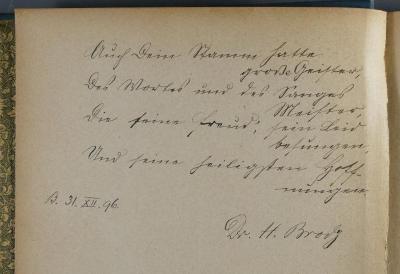 Auch Dein Stamm hatte
große Geister,
Des Wortes und des Sanges
Meister,
Die seine Freud', sein Leid
besungen,
Und seine heiligsten Hoff-
nungen
B. 31. XII. 96.
Dr. H. Brody